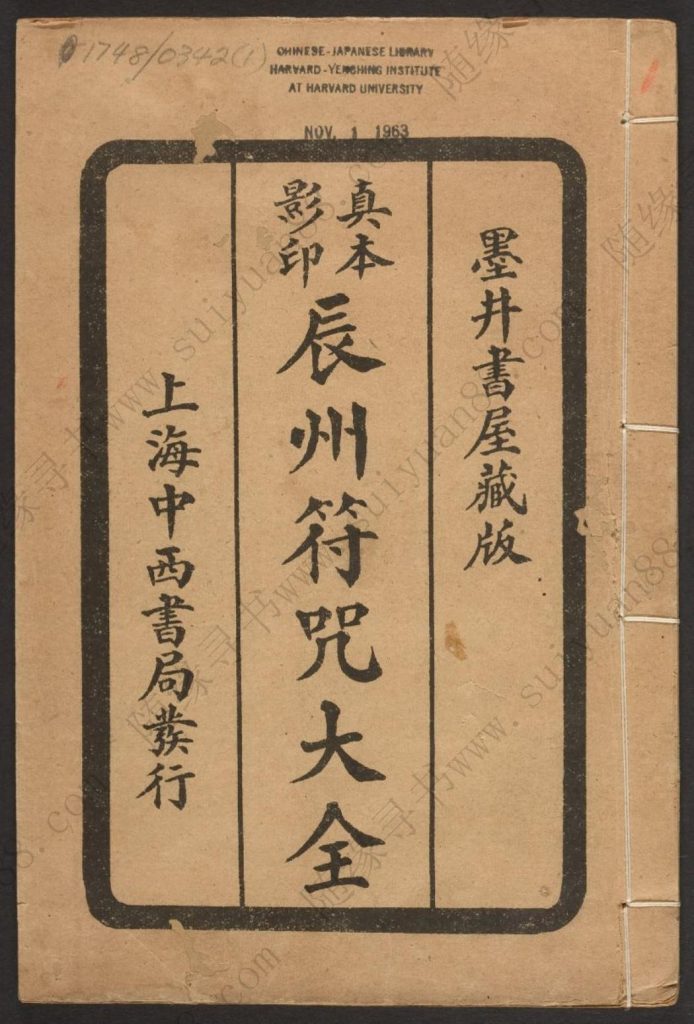 1748/0342(1)
CHINESE-JAPANESE LIBRARY
HARVARD-YENCHING INSTITUTE
AT HARVARD UNIVERSITY
NOV. 1 1963
墨井書屋藏版
真本
影印
辰州符咒大全
上海中西書局發行
随缘寻书www.suiyuan88.com